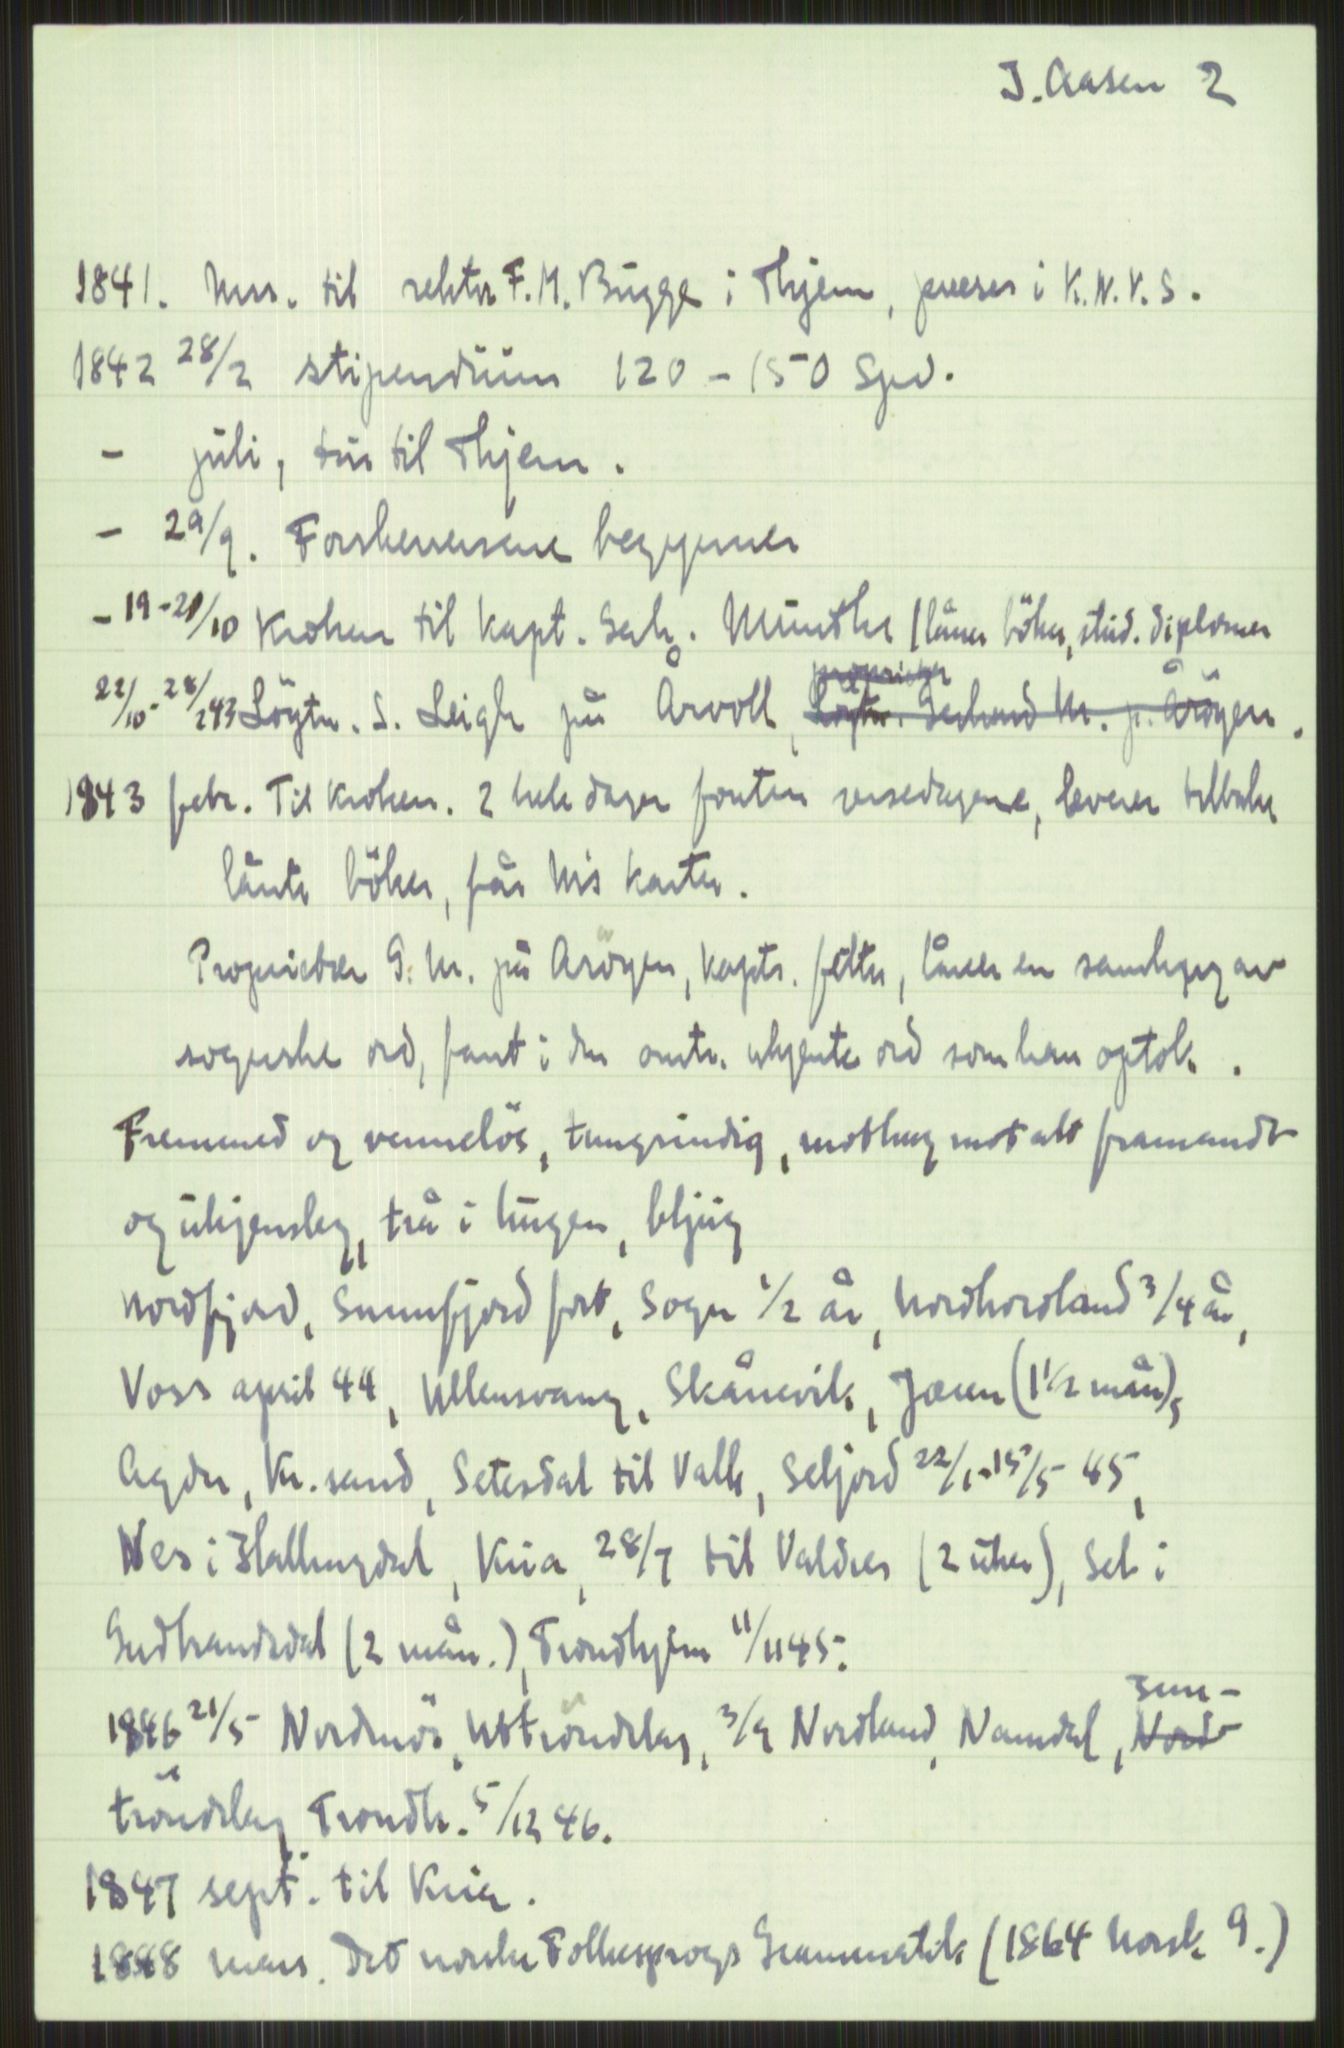 I. Aasen 2
1841. Mss. til rektor F. M. Bugge i Thjem, preses i K.N.V.S.
1842 28/2 stipendium 120 - 150 Spd.
- juli, tur til Thjem.
- 29/9. Forskerreisene begynner
- 19-21/10 Kroken til kapt. Gerh. Munthe (låner böker, stud. diplomer
22/10 - 28/2 43 Löytn. S. Leigh på Årvoll, proprietær Löytn. Gerhard M. p. Åröyen.
1843 febr. Til Kroken. 2 hele dager foruten reisedagene, leverer tilbake
lånte böker, får M's karter.
Proprietær G. M. på Aröyen, kapts. fetter, låner en samling av
sognske ord, fant i den omtr. ukjente ord som han optok.
Fremmed og venneløs, tungsindig, mothug mot alt framandt
og ukjensleg, trå i hugen, bljug
Nordfjord, Sunnfjord fort, Sogn 1/2 år, Nordhordland 3/4 år,
Voss april 44, Ullensvang, Skånevik, Jæren (1 1/2 mån),
Agder, Kr.sand, Setesdal til Valle, Seljord 22/1-15/5 45,
Nes i Hallingdal, Kria, 28/7 til Valdres (2 uker), Sel i
Gudbrandsdal (2 mån.), Trondhjem 11/11 45.
1846 21/5 Nordmör, Uttröndelag, 3/9 Nordland, Namdal, Nord- Inn-
tröndelag Trondh. 5/12 46.
1847 sept. til Kria.
1848 mars. Det norske Folkesprogs Grammatik (1864 Norsk G.)